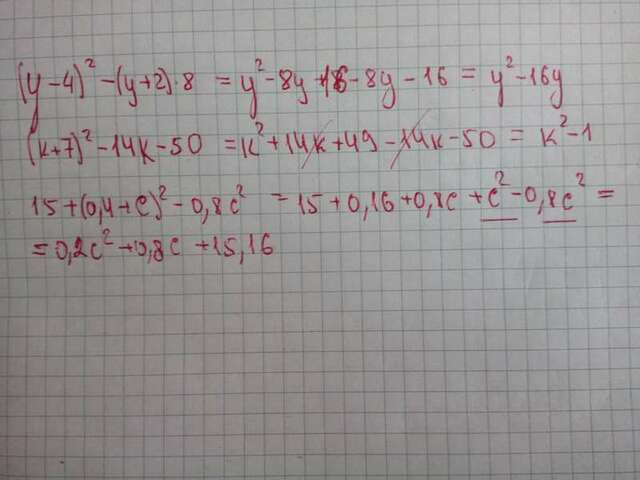 (y-4)² -(y+2)·8 = y² - 8y +16 - 8y - 16 = y² - 16y
(k+7)² - 14k - 50 = k² + 14k + 49 - 14k - 50 = k² - 1
15 + (0,4+c)² - 0,8c² = 15 + 0,16 + 0,8c + c² - 0,8c² =
= 0,2c² + 0,8c + 15,16